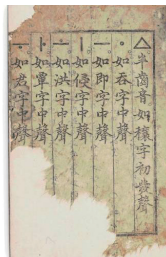 ㅿ半齒音如穰字初發聲
ㆍ如呑字中聲
ㅡ如即字中聲
ㅣ如侵字中聲
ㅗ如洪字中聲
ㅏ如覃字中聲
ㅜ如君字中聲